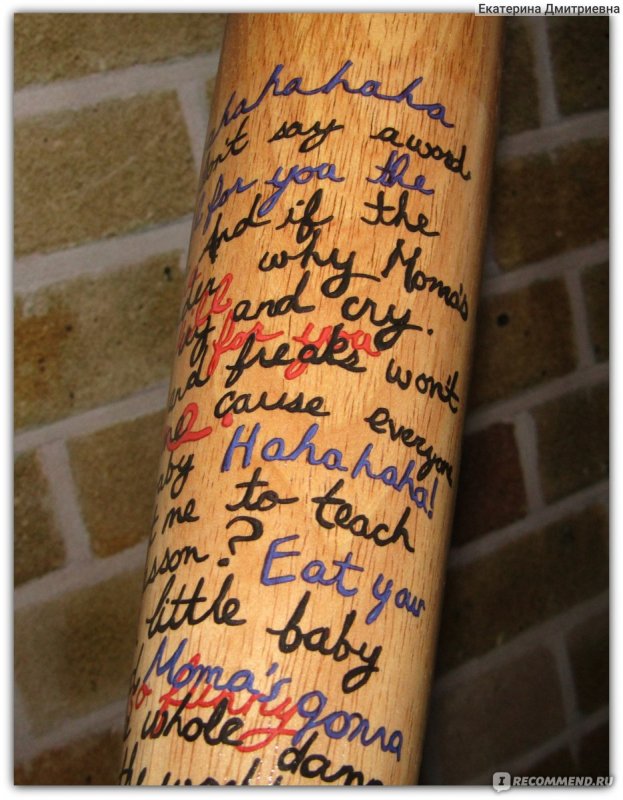 Екатерина Дмитриевна
hahahahaha
say a word
for you the
And if the
why Moma's
and cry.
for you
freaks won't
cause everyone
Hahahaha!
me to teach
Eat your
little baby
Moma's gonna
funny
whole damn
I RECOMMEND.RU